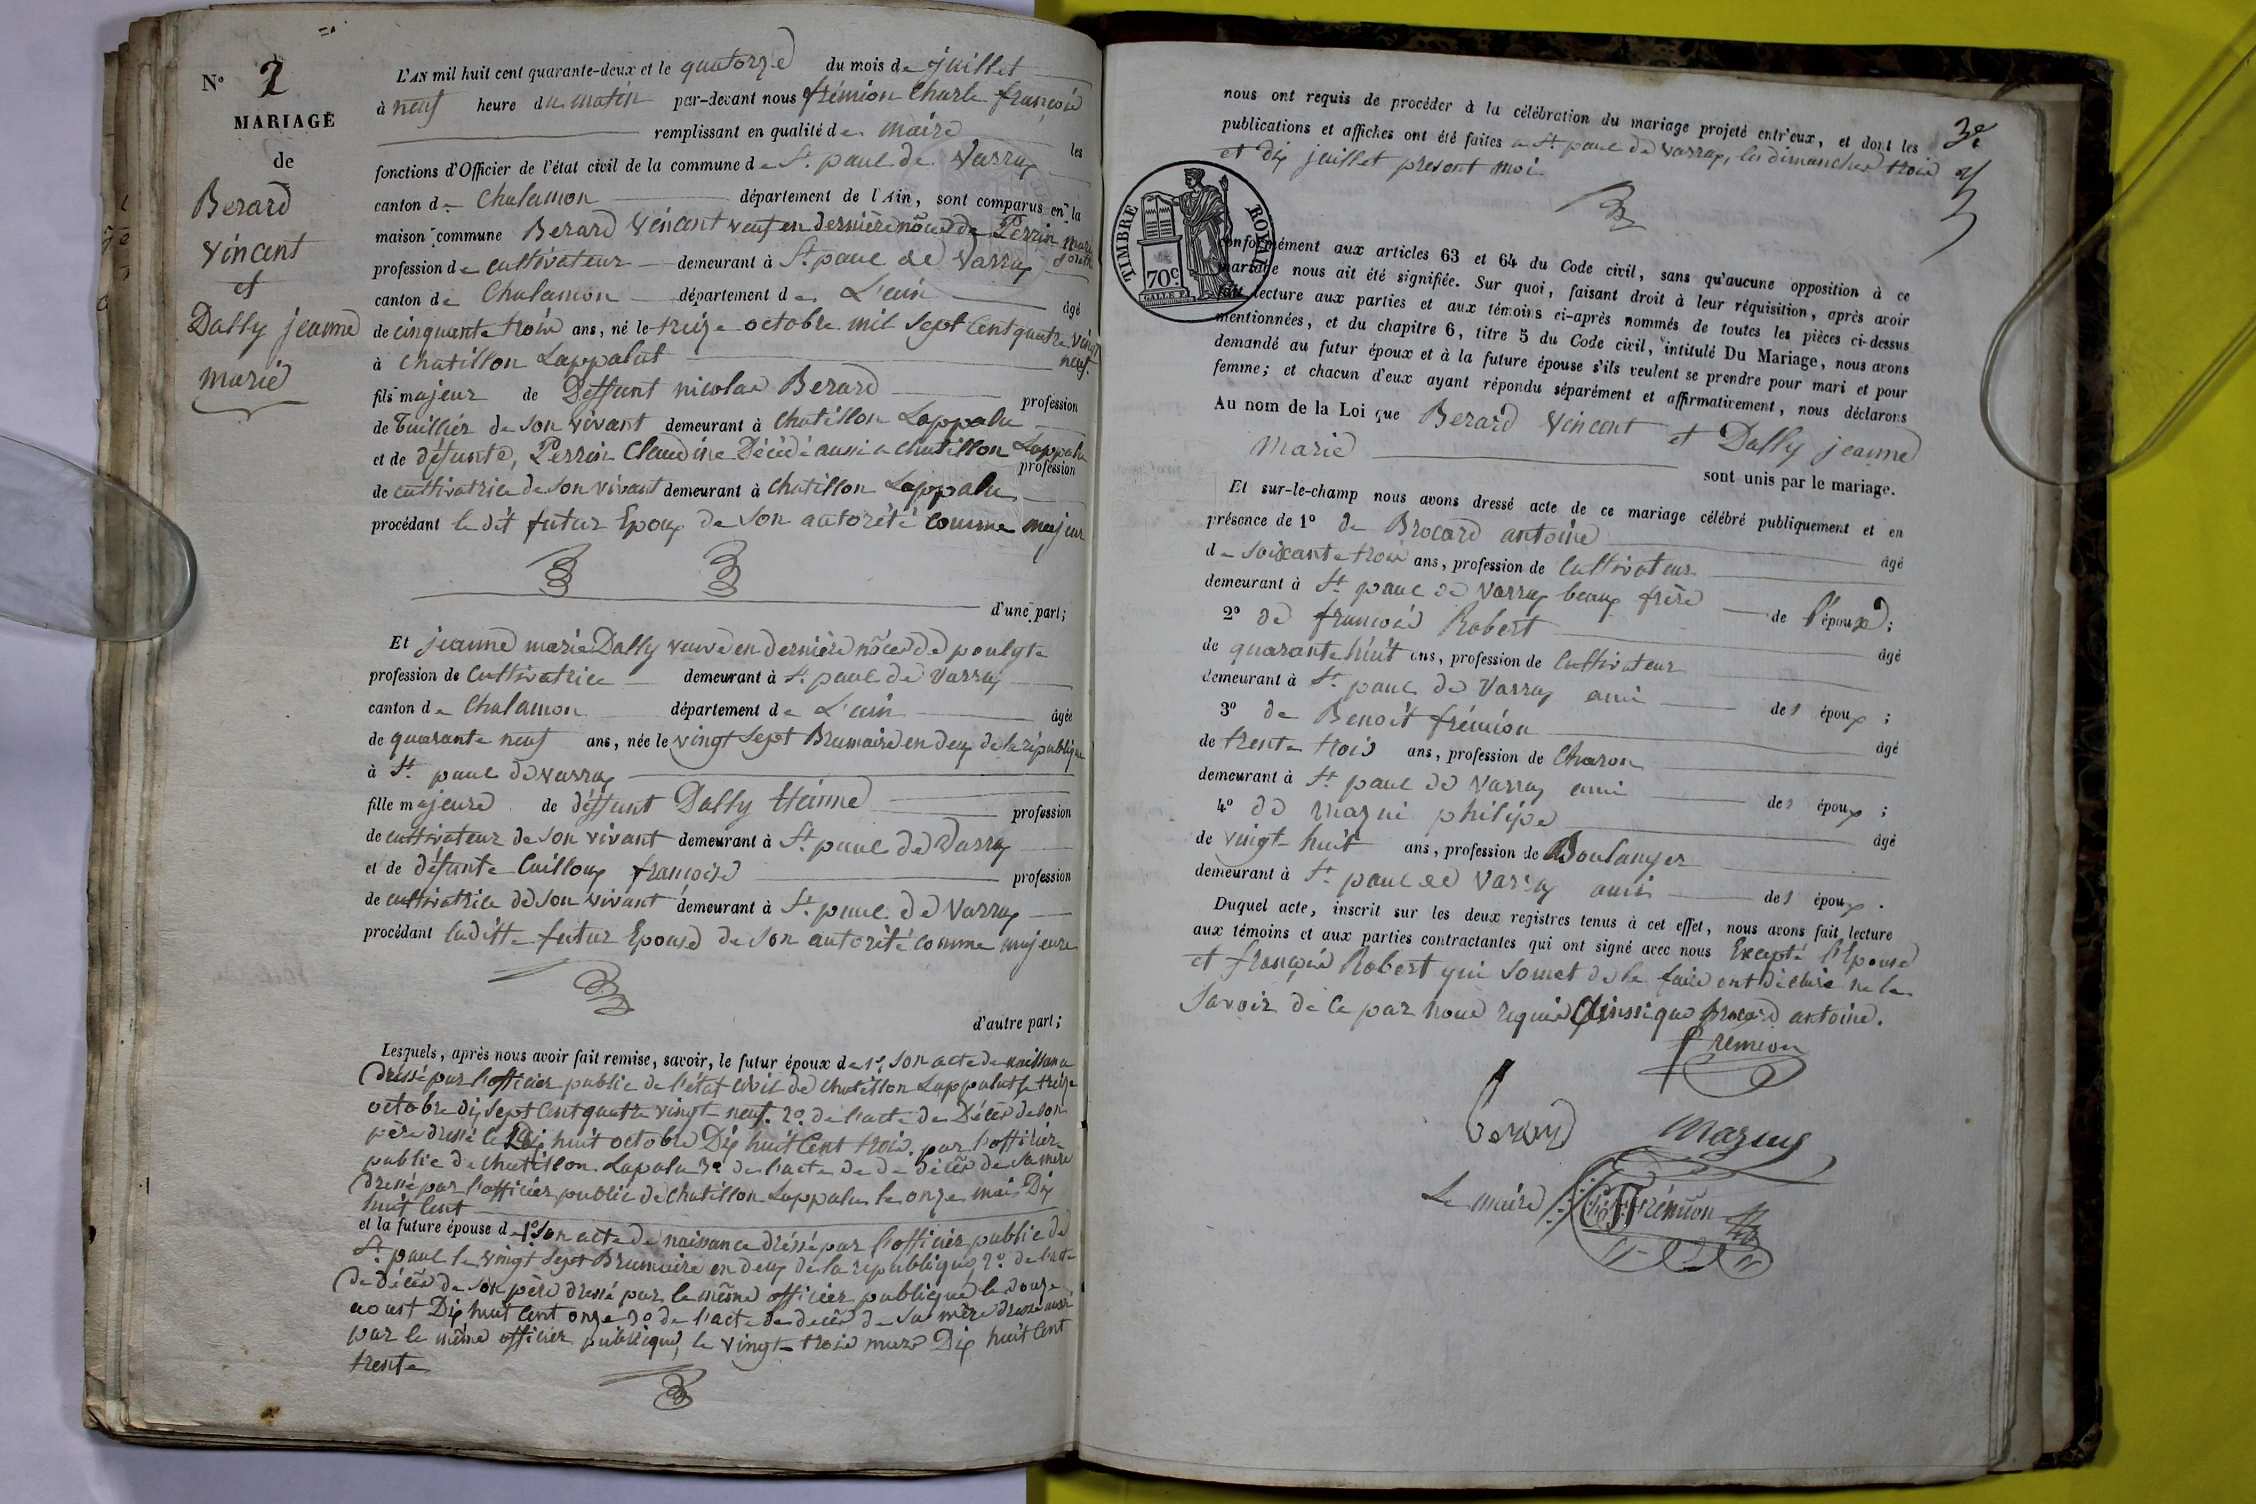 N° 2
MARIAGE
de
Berard
Vincent
et
Dally jeanne
marie
L'AN mil huit cent quarante-deux et le quatorze du mois de juillet
à neuf heure du matin par-devant nous frémion Charle françois
remplissant en qualité de maire les
fonctions d'Officier de l'état civil de la commune de St paul de Varrax
canton de Chalamon département de l'Ain, sont comparus en la
maison commune Berard Vincent veuf en dernière nôce de Perrin marie
profession de cultivateur demeurant à St paul de Varrax
canton de Chalamon département de L'ain âgé
de cinquante trois ans, né le treize octobre mil sept cent quatre vingt
à Chatillon Lappalut neuf.
fils majeur de Deffunt nicolas Berard profession
de Tuillier de son vivant demeurant à Chatillon Lappalu
et de défunte, Perrin Claudine Décédé aussi a chatillon Lappalu
profession
de cultivatrice de son vivant demeurant à Chatillon Lappalu
procédant le dit futur Epoux de son autorété comme majeur
d'une part;
Et jeanne marie Dally veuve en dernière nôce de poulyte
profession de Cultivatrice demeurant à St paul de Varrax
canton de Chalamon département de L'ain âgée
de quarante neuf ans, née le vingt Sept Brumaire en deux de la république
à St paul de varrax
fille majeure de déffunt Dally Etienne profession
de cultivateur de son vivant demeurant à St paul de Varrax
et de défunte Cuilloux françoise profession
de cultivatrice de son vivant demeurant à St paul de Varrax
procédant laditte futur Epouse de son autorité comme majeure
d'autre part;
Lesquels, après nous avoir fait remise, savoir, le futur époux de 1° son acte de naissance
dréssé par l'officier public de l'état civil de Chatillon Lappalut le treize
octobre dix sept cent quatre vingt neuf. 2° de l'acte de Décès de son
père dressé le Dix huit octobre Dix huit Cent trois. par l'officier
public de Chatillon Lapalu 3° de l'acte de de décès de sa mère
dressé par l'officier public de Chatillon Lappalu le onze mai Dix
huit Cent
et la future épouse de 1° son acte de naissance dréssé par l'officier public de
St paul le vingt Sept Brumaire en deux de la republique, 2° de l'acte
de décès de son père dressé par le même officier publique le douze
aoust Dix huit Cent onze 3° de l'acte de decès de sa mère dressé aussi
par le même officier publique, le vingt trois mars Dix huit Cent
trente
3e
nous ont requis de procéder à la célébration du mariage projeté entr'eux, et dont les
publications et affiches ont été faites a St paul de Varrax, les dimanches trois
et dix juillet present moi
TIMBRE ROYAL
70c.
conformément aux articles 63 et 64 du Code civil, sans qu'aucune opposition à ce
mariage nous ait été signifiée. Sur quoi, faisant droit à leur réquisition, après avoir
fait lecture aux parties et aux témoins ci-après nommés de toutes les pièces ci-dessus
mentionnées, et du chapitre 6, titre 5 du Code civil, intitulé Du Mariage, nous avons
demandé au futur époux et à la future épouse s'ils veulent se prendre pour mari et pour
femme; et chacun d'eux ayant répondu séparément et affirmativement, nous déclarons
Au nom de la Loi que Berard Vincent et Dally jeanne
Marie
sont unis par le mariage.
Et sur-le-champ nous avons dressé acte de ce mariage célébré publiquement et en
présence de 1° de Brocard antoine âgé
de soixante trois ans, profession de Cultivateur
demeurant à St paul de Varrax beaux frère de l'époux;
2° de françois Robert âgé
de quarante huit ans, profession de Cultivateur
demeurant à St paul de Varrax ami des époux;
3° de Benoit frémion âgé
de trente trois ans, profession de Charon
demeurant à St paul de Varrax ami des époux;
4° de Mazui philipe âgé
de vingt huit ans, profession de Boulanger
demeurant à St paul de Varrax ami des époux.
Duquel acte, inscrit sur les deux registres tenus à cet effet, nous avons fait lecture
aux témoins et aux parties contractantes qui ont signé avec nous Excepté l'Epouse
et françois Robert qui somet de le faire ont déclaré ne le
Savoir de ce par nous requis Ainsi que Brocard antoine.
fremion
Berard
Mazuy
Le maire Frémion